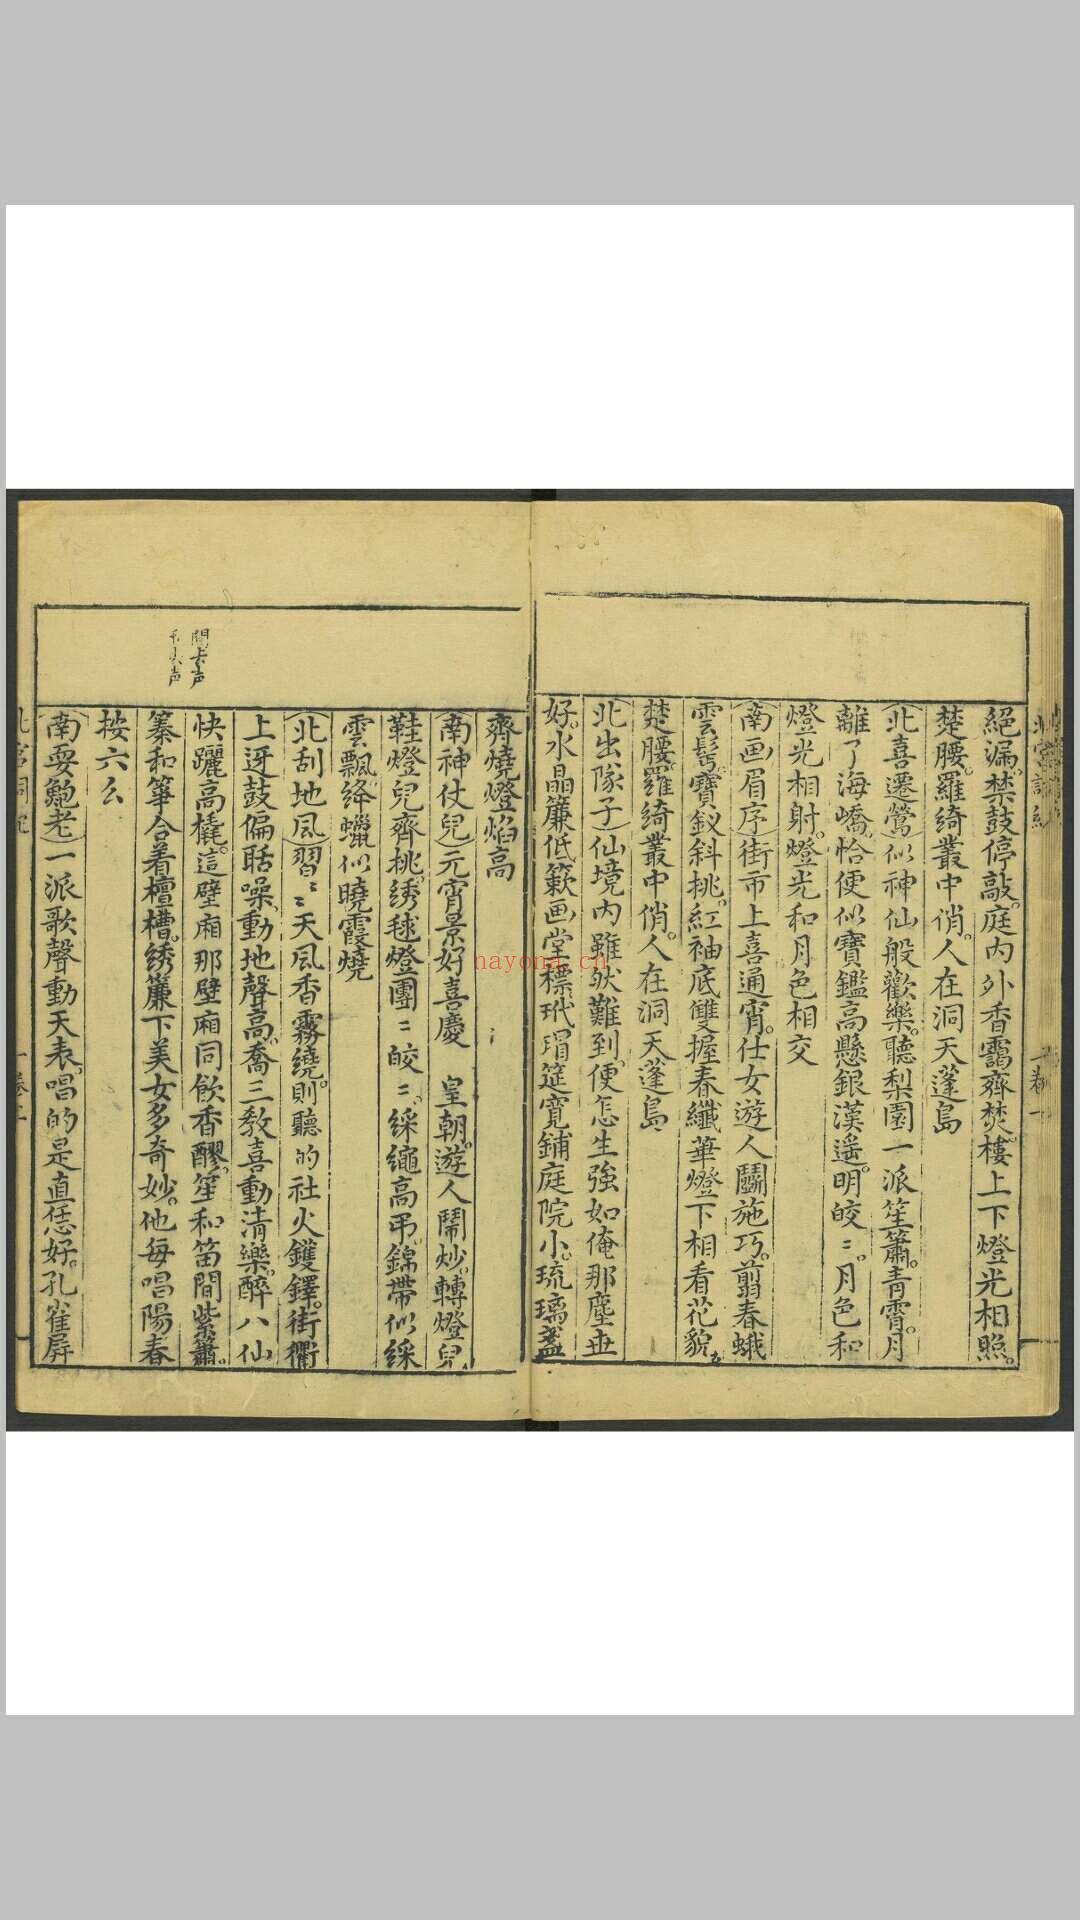 絕漏。禁鼓停敲。庭内外香靄齊焚。樓上下燈光相照。
楚腰。羅綺叢中俏。人在洞天蓬島
（北喜遷鶯）似神仙般歡樂。聽梨園一派笙簫。青霄。月
離了海嶠。恰便似寶鑑高懸銀漢遥。明皎〻。月色和
燈光相射。燈光和月色相交
（南画眉序）街市上喜通宵。仕女遊人鬪施巧。翦春蛾
雲髻寶釵斜挑。紅袖底雙握春纖華燈下相看花貌。
楚腰。羅綺叢中俏。人在洞天蓬島
（北出隊子）仙境内雖然難到。便怎生強如俺那塵世
好。水晶簾低簌画堂標。玳瑁筵寬鋪庭院小。琉璃盞
齊燒燈焰高
（南神仗兒）元宵景好喜慶 皇朝。遊人鬧炒。轉燈兒
鞋燈兒齊挑。綉毬燈團〻皎〻。綵繩高弔。錦帶似綵
雲飄。絳蠟似曉霞燒
（北刮地風）習〻天風香霧繞。則聽的社火鑊鐸。街衢
上迓鼓偏聒噪。動地聲高。喬三教喜動清樂。醉八仙
快躧高橇。這壁廂那壁廂同飲香醪。笙和笛間紫簫。
䈜和箏合着檀槽。綉簾下美女多奇妙。他每唱陽春
按六么
（南耍鮑老）一派歌聲動天表。唱的是直恁好。孔雀屏
間去声
弔尖声
北宫詞紀
卷一
nayona.cn